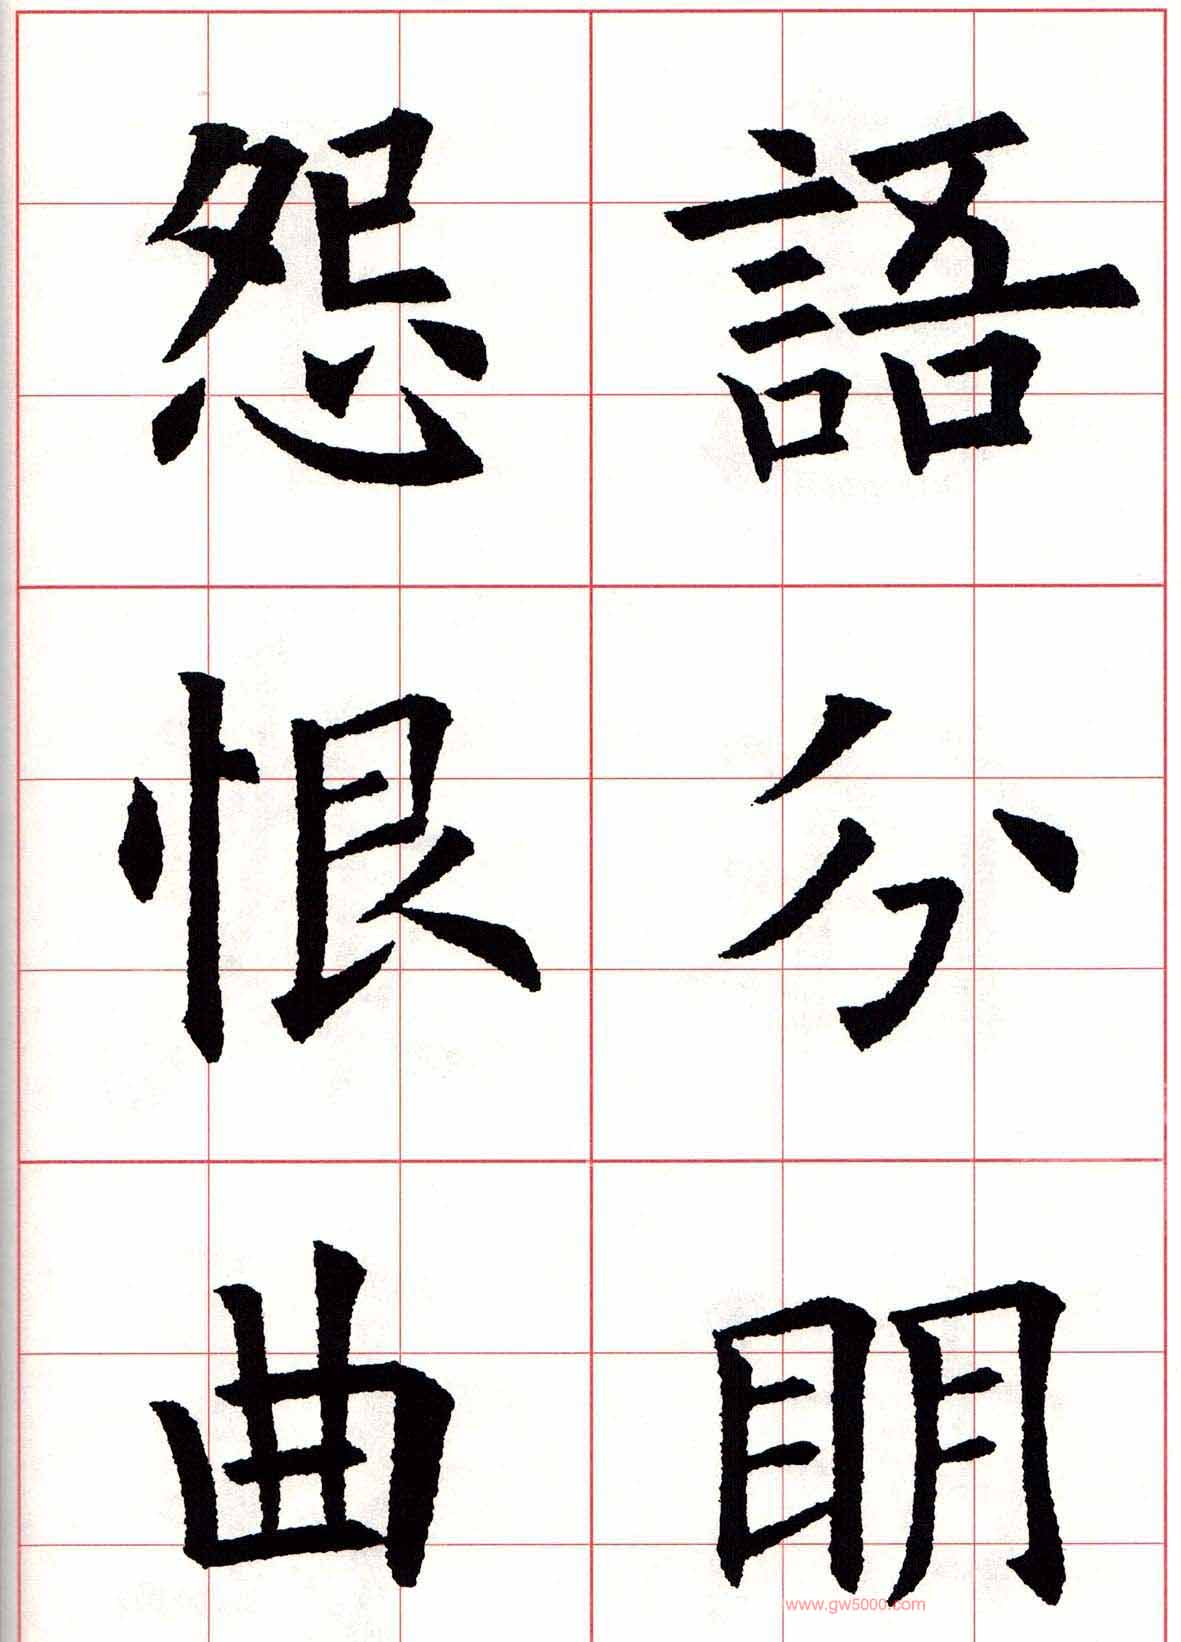 語分明
怨恨曲
www.gw5000.com